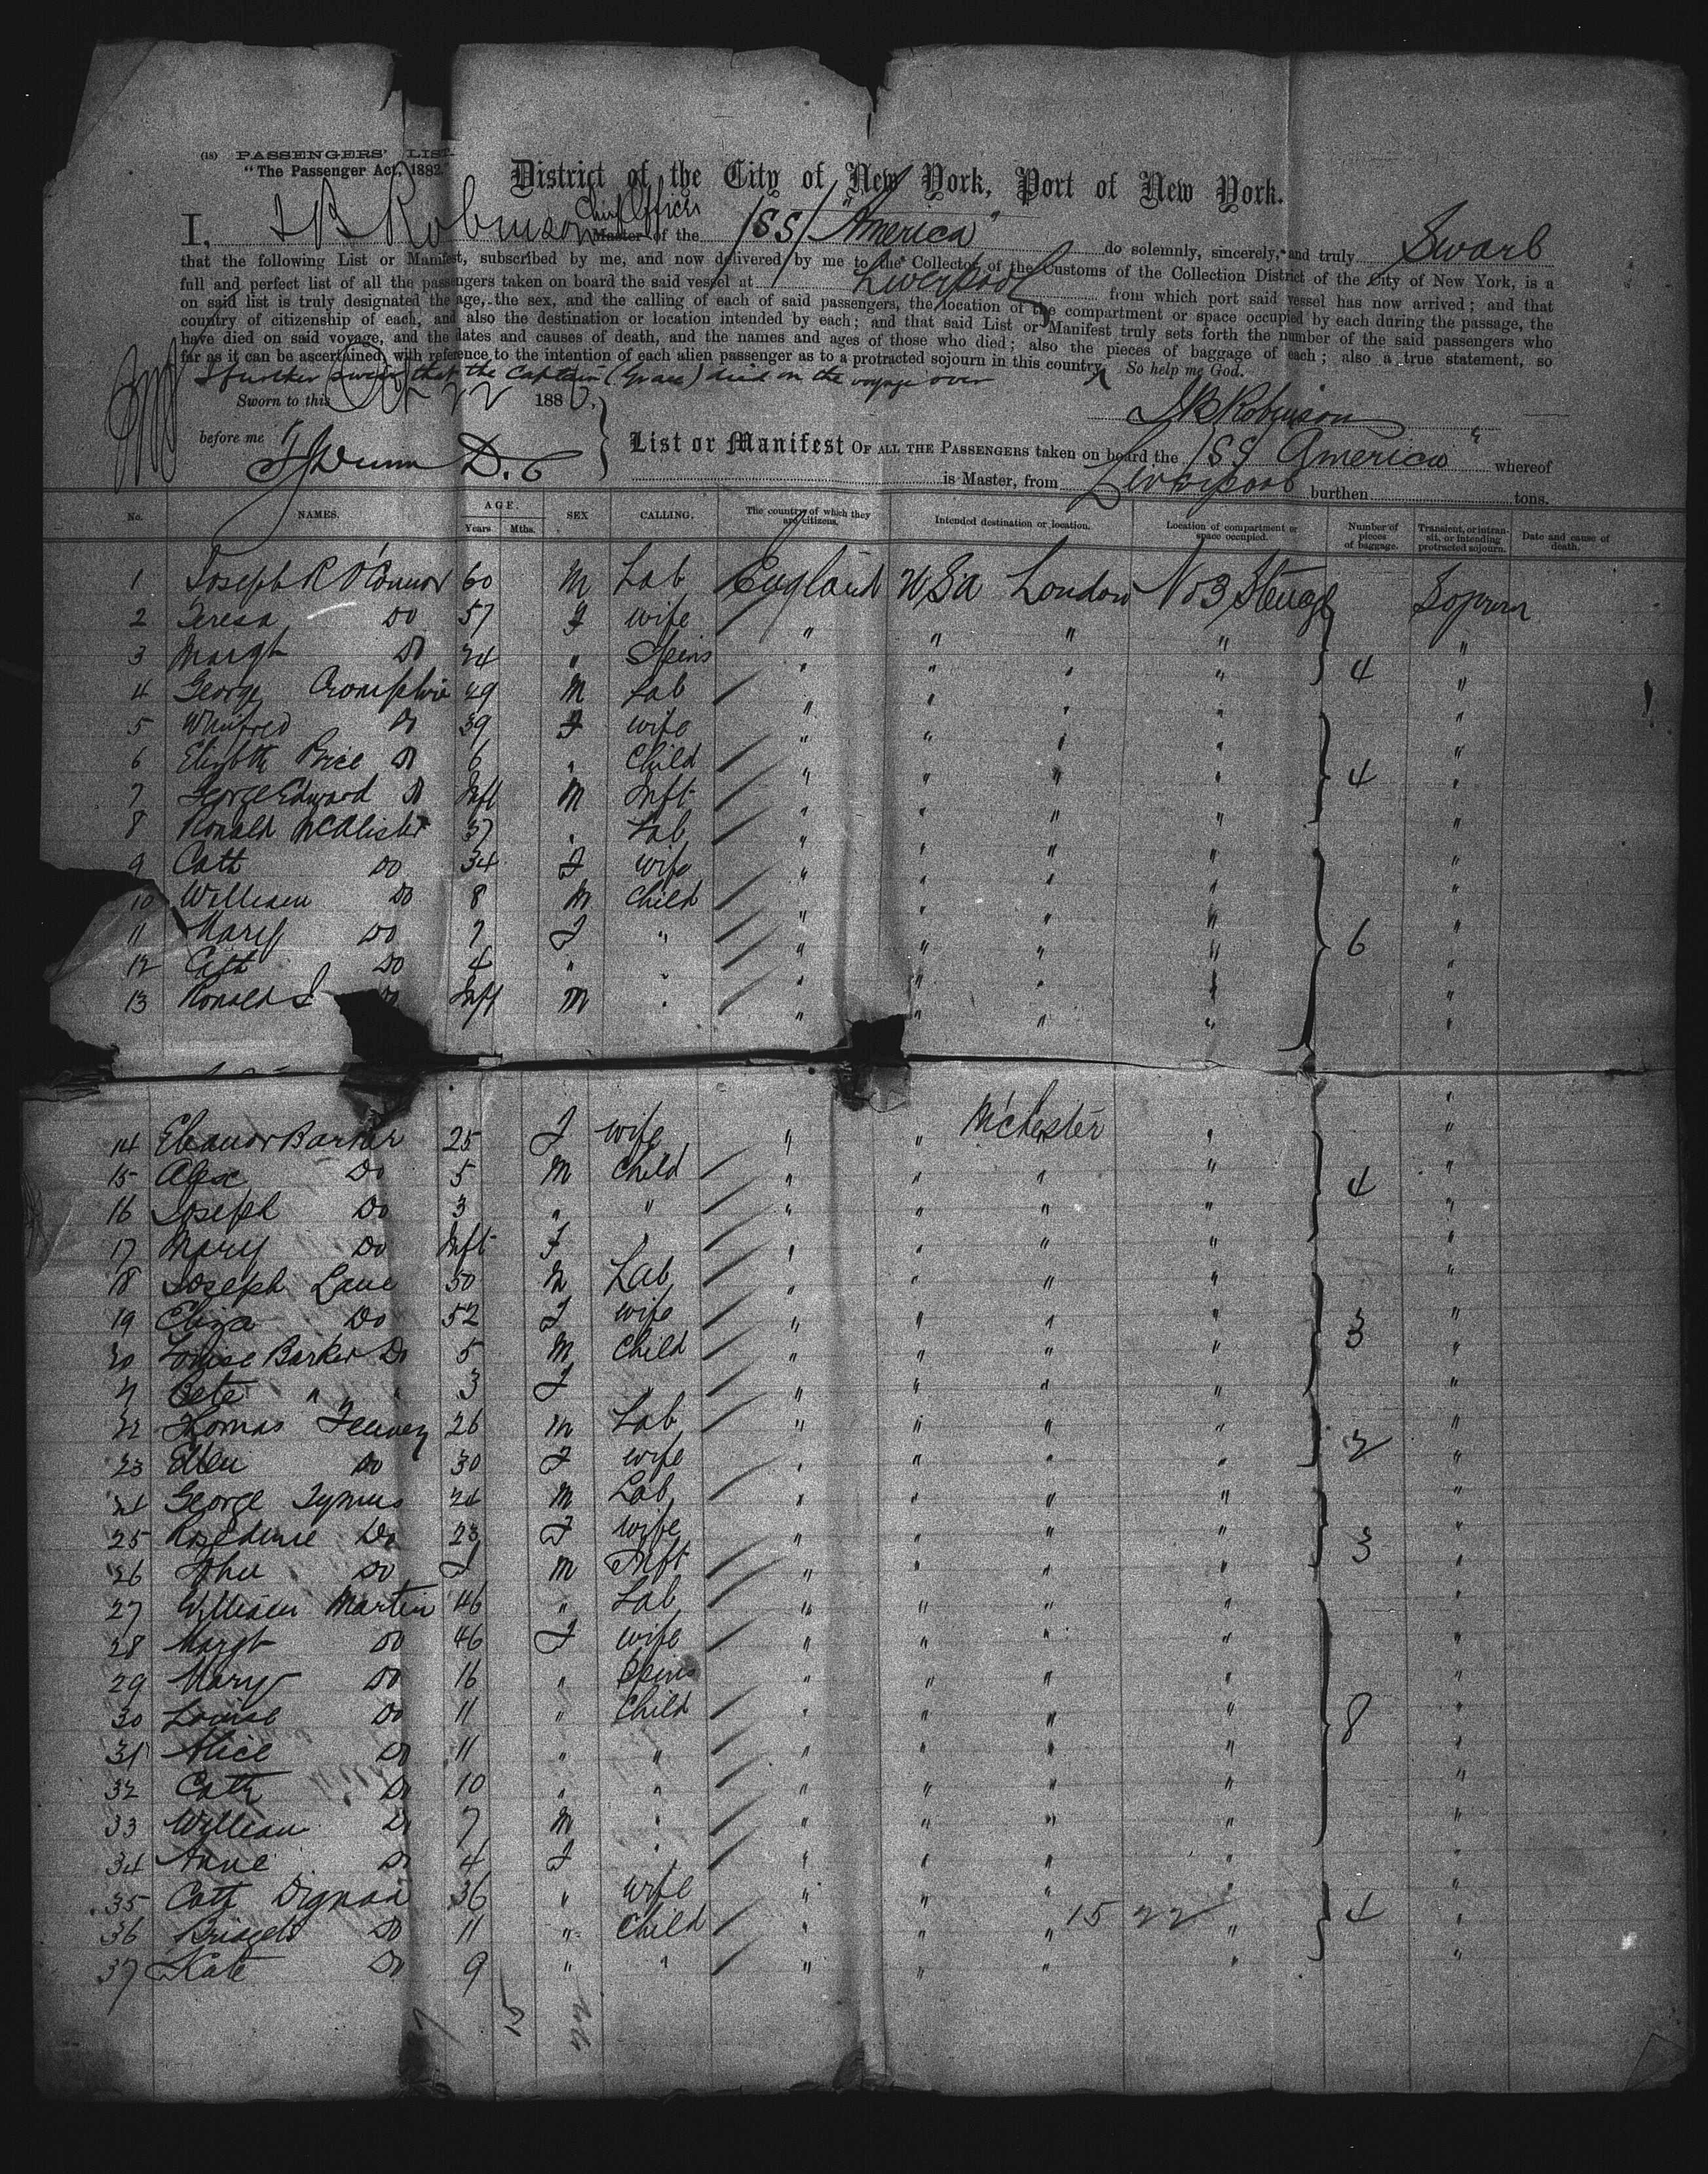 (18) PASSENGERS' LIST.
"The Passenger Act, 1882."
District of the City of New York, Port of New York.
I, J B Robinson Chief Officer Master of the /SS/ "America" do solemnly, sincerely, and truly Swear
that the following List or Manifest, subscribed by me, and now delivered by me to the Collector of the Customs of the Collection District of the City of New York, is a
full and perfect list of all the passengers taken on board the said vessel at Liverpool from which port said vessel has now arrived; and that
on said list is truly designated the age, the sex, and the calling of each of said passengers, the location of the compartment or space occupied by each during the passage, the
country of citizenship of each, and also the destination or location intended by each; and that said List or Manifest truly sets forth the number of the said passengers who
have died on said voyage, and the dates and causes of death, and the names and ages of those who died; also the pieces of baggage of each; also a true statement, so
far as it can be ascertained, with reference to the intention of each alien passenger as to a protracted sojourn in this country. So help me God.
I further swear that the Captain (Grace) died on the voyage over
Sworn to this Oct 22 1886.
J B Robinson
before me
D. C
List or Manifest OF ALL THE PASSENGERS taken on board the /SS America" whereof
is Master, from Liverpool burthen tons.
No. NAMES. AGE. Years Mths. SEX CALLING. The country of which they are citizens. Intended destination or location. Location of compartment or space occupied. Number of pieces of baggage. Transient, or in transit, or intending protracted sojourn. Date and cause of death.
1 Joseph R O'Connor 60 M Lab England USA London No 3 Steuage Sojourn
2 Teresa Do 57 F wife " " " " "
3 Margt Do 24 " Spins " " " " 4 "
4 George 49 M Lab " " " " "
5 Winifred Do 39 F wife " " " " "
6 Elizbth Price Do 6 " Child " " " " "
7 George Edward Do Inft M Inft " " " " 4 "
8 Ronald McAlister 37 " Lab " " " " "
9 Cath Do 34 F wife " " " " "
10 William Do 8 M Child " " " " "
11 Mary Do 7 F " " " " " 6 "
12 Cath Do 4 " " " " " " "
13 Ronald Do Inft M " " " " " "
14 Eleanor Barker 25 F wife " " M'Chester " "
15 Alex Do 5 M Child " " " " 4 "
16 Joseph Do 3 " " " " " " "
17 Mary Do Inft F " " " " " "
18 Joseph Lane 50 M Lab " " " " "
19 Eliza Do 52 F wife " " " " 3 "
20 Louise Barker Do 5 M Child " " " " "
21 " " 3 F " " " " " "
22 Thomas 26 M Lab " " " " "
23 Ellen Do 30 F wife " " " " 2 "
24 George 24 M Lab " " " " "
25 Do 23 F wife " " " " "
26 John Do M Inft " " " " 3 "
27 William Martin 46 " Lab " " " " "
28 Margt Do 46 F wife " " " " "
29 Mary Do 16 " Spins " " " " "
30 Louise Do 11 " Child " " " " 8 "
31 Alice Do 11 " " " " " " "
32 Cath Do 10 " " " " " " "
33 William Do 7 M " " " " " "
34 Anne Do 4 F " " " " " "
35 Cath Dignan 36 " wife " " " " "
36 Bridget Do 11 " Child " " " 15 22 " 4 "
37 Kate Do 9 " " " " " " "